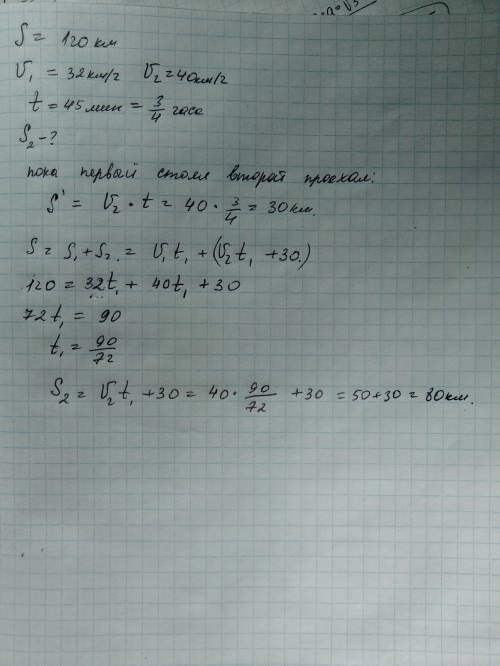 S = 120 км
V₁ = 32 км/г V₂ = 40 км/г
t = 45 мин = 3/4 часа
S₂ - ?
пока первый стоял второй проехал:
S' = V₂ · t = 40 · 3/4 = 30 км.
S = S₁ + S₂ = V₁t₁ + (V₂t₁ + 30)
120 = 32t₁ + 40t₁ + 30
72t₁ = 90
t₁ = 90/72
S₂ = V₂t₁ + 30 = 40 · 90/72 + 30 = 50 + 30 = 80 км.